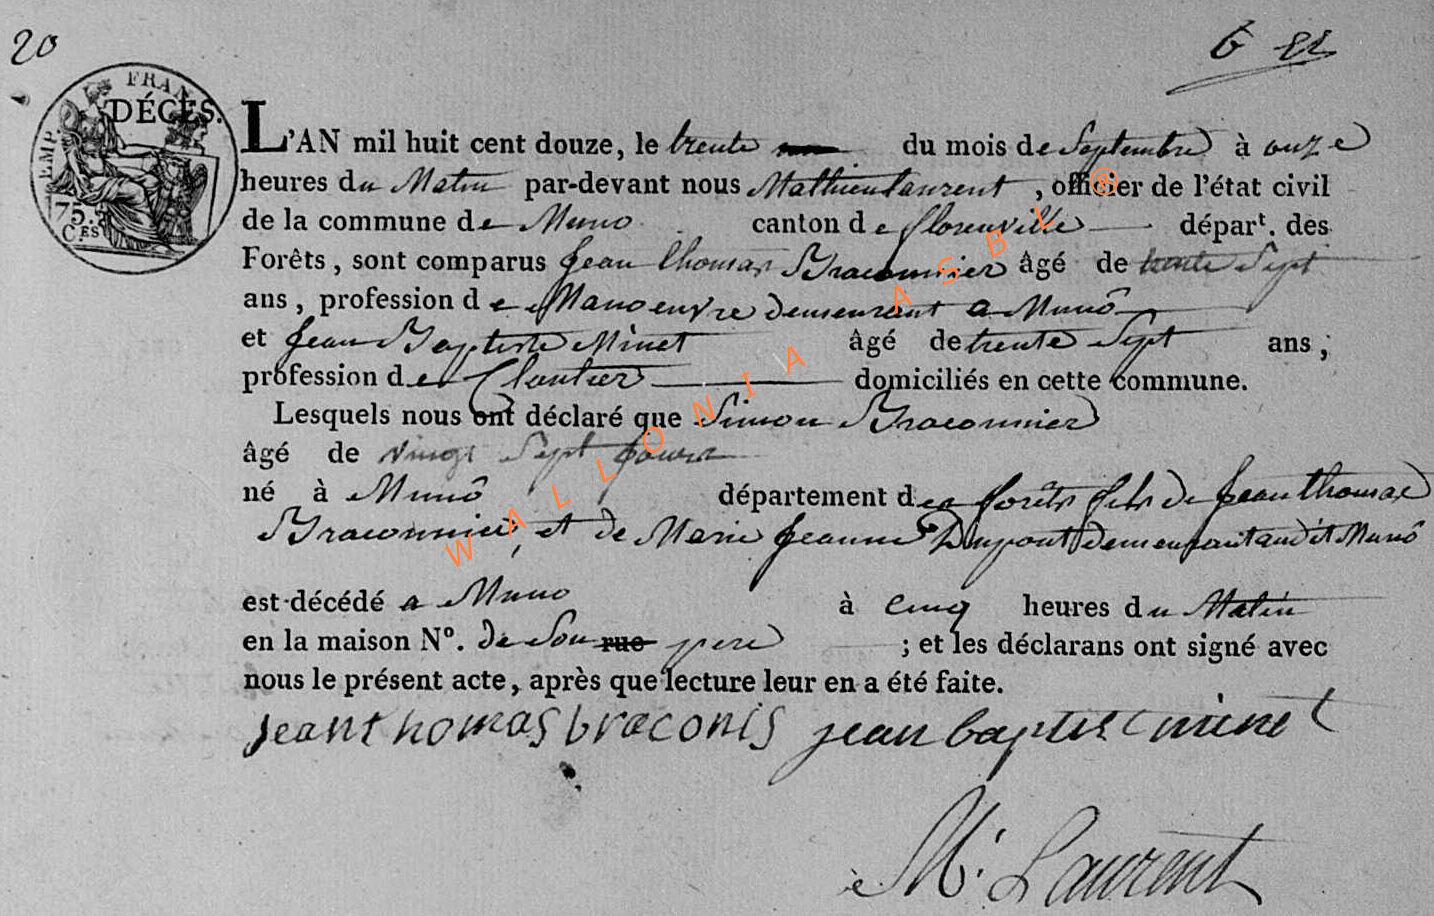 20
EMP. FRAN
75. CES
DÉCÈS.
L'AN mil huit cent douze, le trente du mois de Septembre à onze
heures du Matin par-devant nous Mathieu Laurent, officier de l'état civil
de la commune de Muno canton de florenville départ. des
Forêts, sont comparus Jean thomas Braconnier âgé de trente Sept
ans, profession de Manoeuvre demeurant a Munô
et Jean Baptiste Minet âgé de trente Sept ans;
profession de Cloutier domiciliés en cette commune.
Lesquels nous ont déclaré que Simon Braconnier
âgé de vingt Sept jours
né à Munô département des forêts fils de Jean thomas
Braconnier, et de Marie Jeanne Dupont demeurant audit Munô
est décédé a Muno à cinq heures du Matin
en la maison N°. de Son rue pere ; et les déclarans ont signé avec
nous le présent acte, après que lecture leur en a été faite.
jean thomas braconis jean baptist minet
M. Laurent
WALLONIA ASBL ®